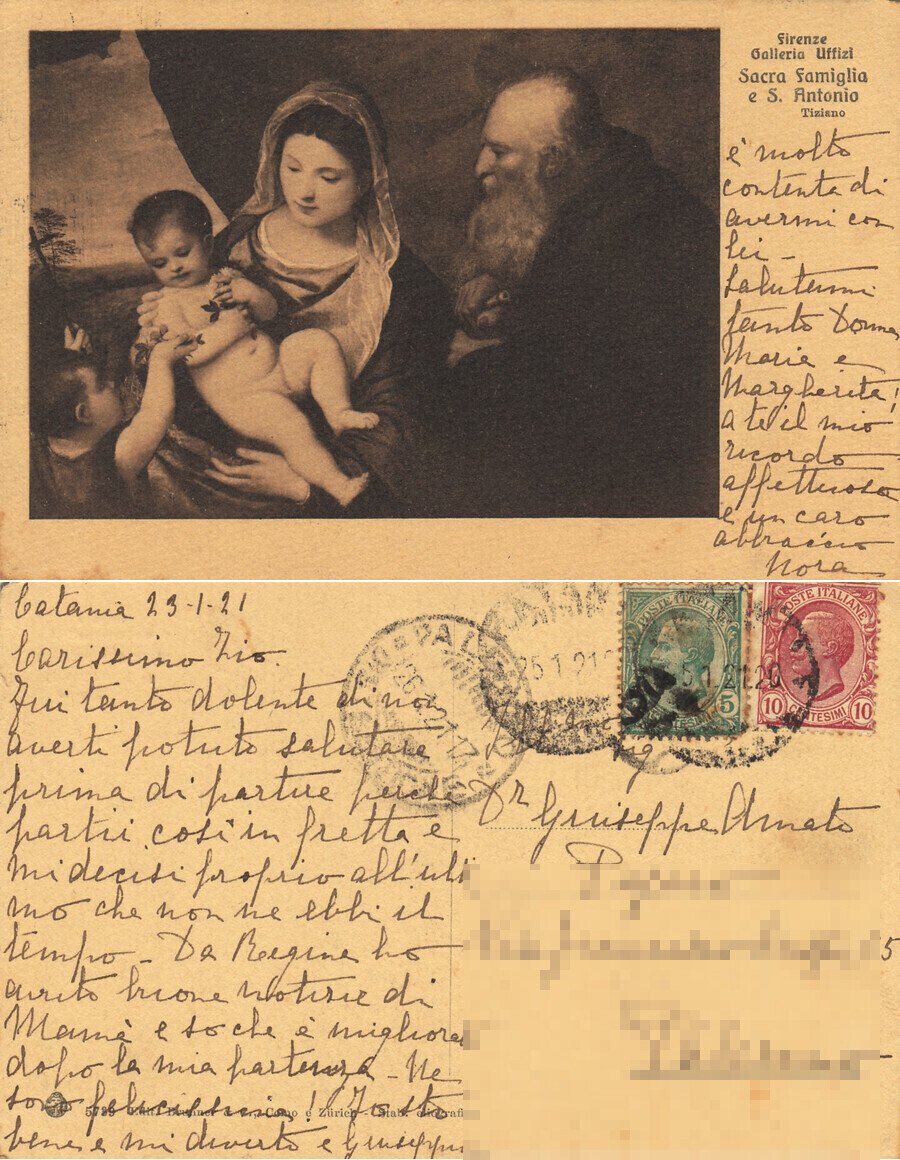 Firenze
Galleria Uffizi
Sacra Famiglia
e S. Antonio
Tiziano
è molto
contenta di
avermi con
lei -
Salutami
tanto Donna
Maria e
Margherita!
a te il mio
ricordo
affettuoso
e un caro
abbraccio
Nora
Catania 23-1-21
Carissimo Zio.
Fui tanto dolente di non
averti potuto salutare
prima di partire perchè
partii così in fretta e
mi decisi proprio all'ulti
mo che non ne ebbi il
tempo - Da Regine ho
avuto buone notizie di
Mamà e so che è migliorat
dopo la mia partenza - Ne
sono felicissima! Io sto
bene e mi diverto e Giuseppin
POSTE ITALIANE
5
CENTESIMI
POSTE ITALIANE
10 CENTESIMI 10
25 1 21
Dr Giuseppe Amato
5
5788
Como e Zürich